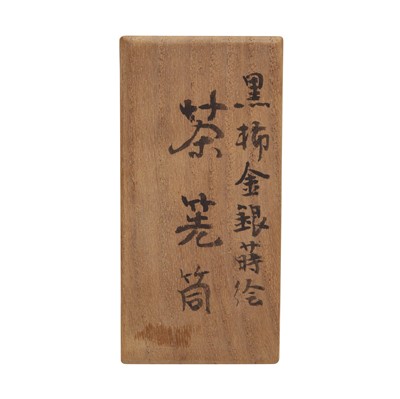 黒柿金銀蒔絵
茶筅筒